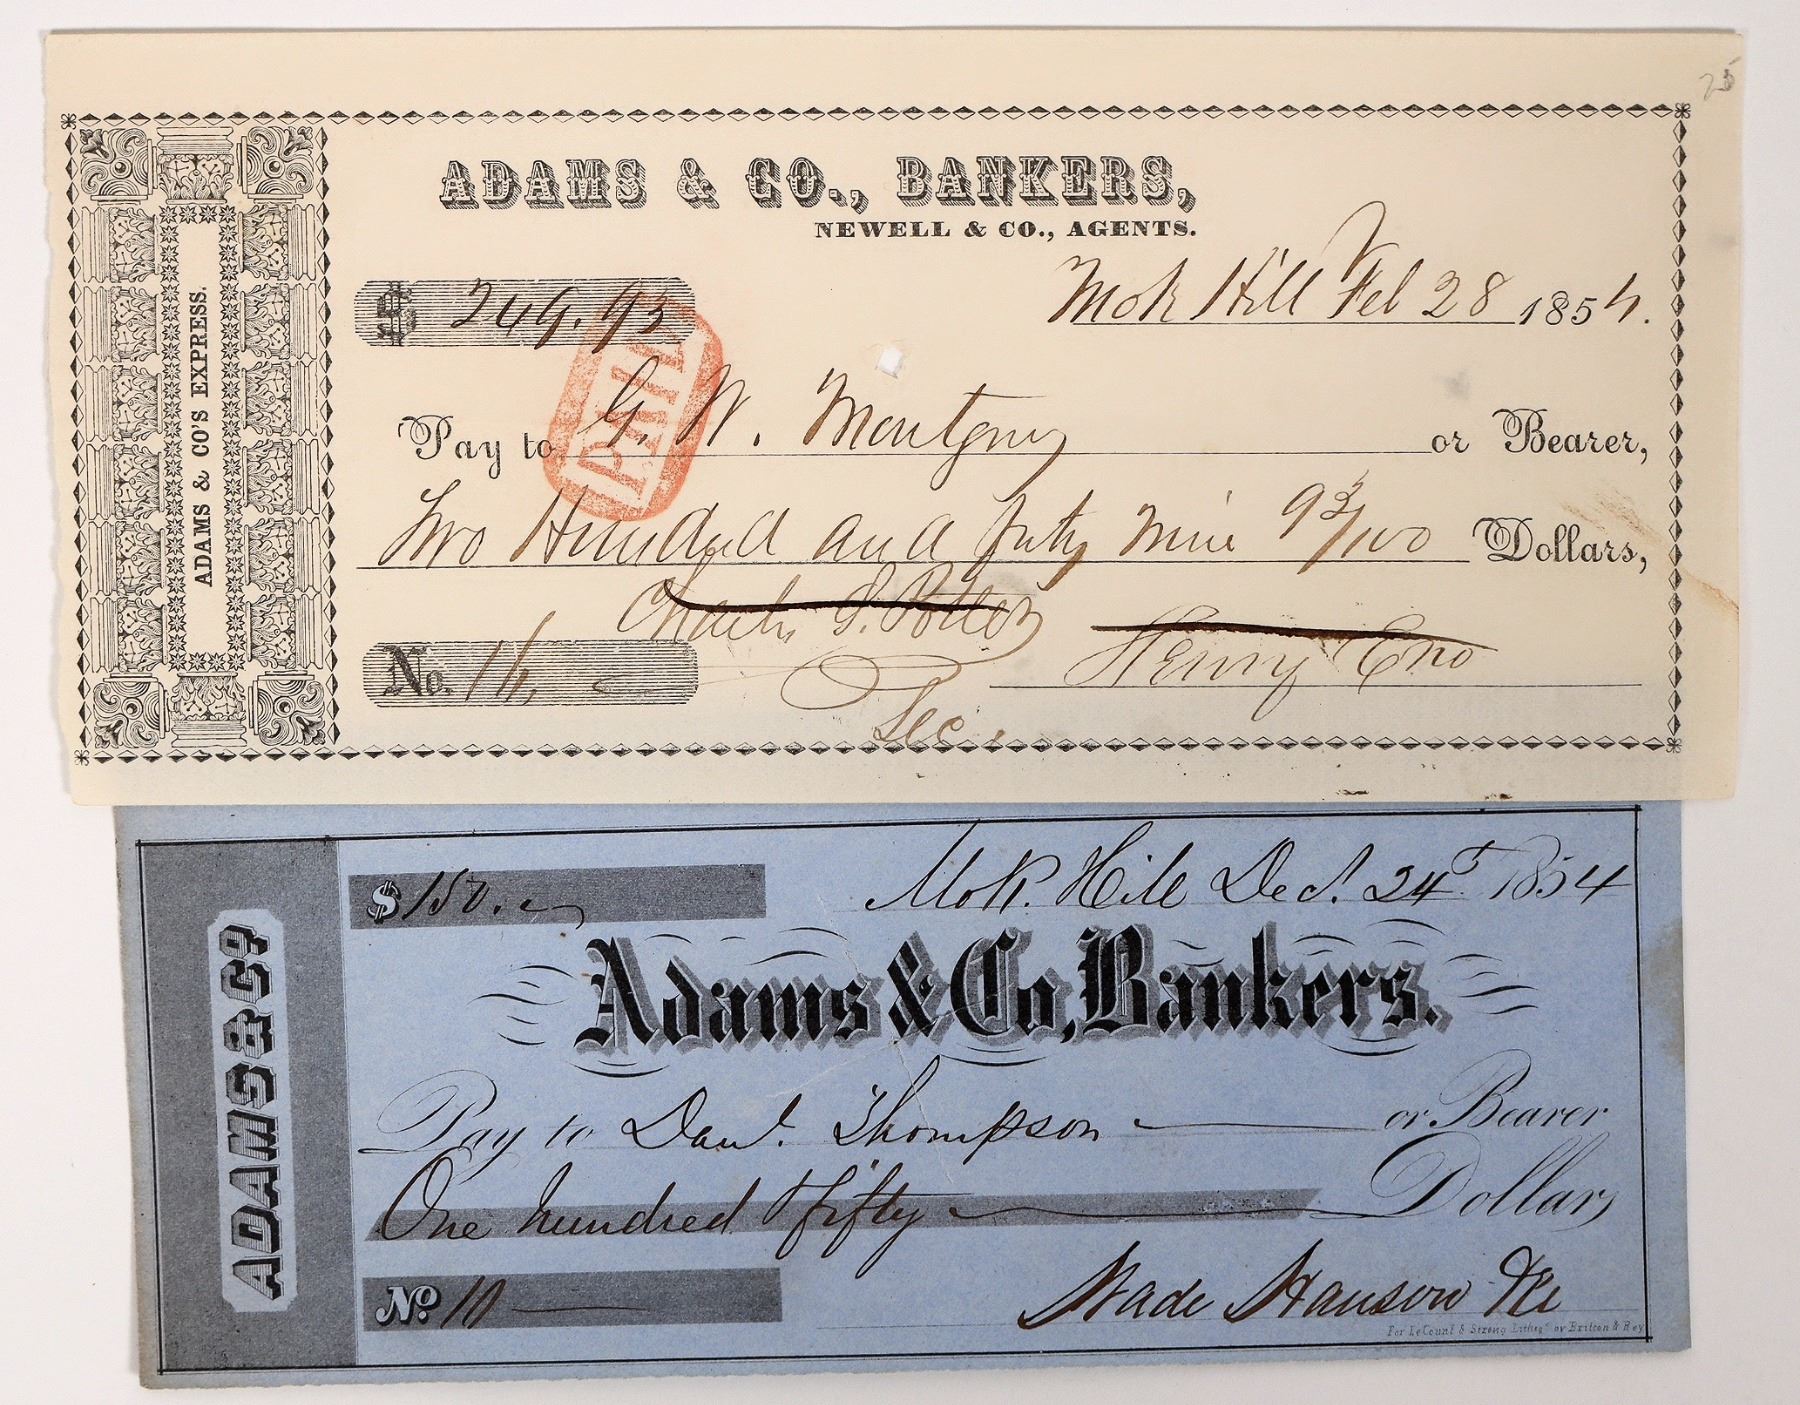 25
ADAMS & CO., BANKERS,
NEWELL & CO., AGENTS.
Mok Hill Feb 28 1854.
$ 249.93
PAID
Pay to G. W. Montgmy or Bearer,
Two Hundred and forty nine 93/100 Dollars,
Charles S. Potter
Henry Eno
No. 14,
Sec.
ADAMS & CO'S EXPRESS.
$ 150.
Mok. Hill Dec. 24 1854
Adams & Co, Bankers.
Pay to Danl. Thompson or Bearer
One hundred & fifty Dollars
No 10
Wade Hanson
For LeCount & Strong Lithog. by Britton & Rey
ADAMS & CO